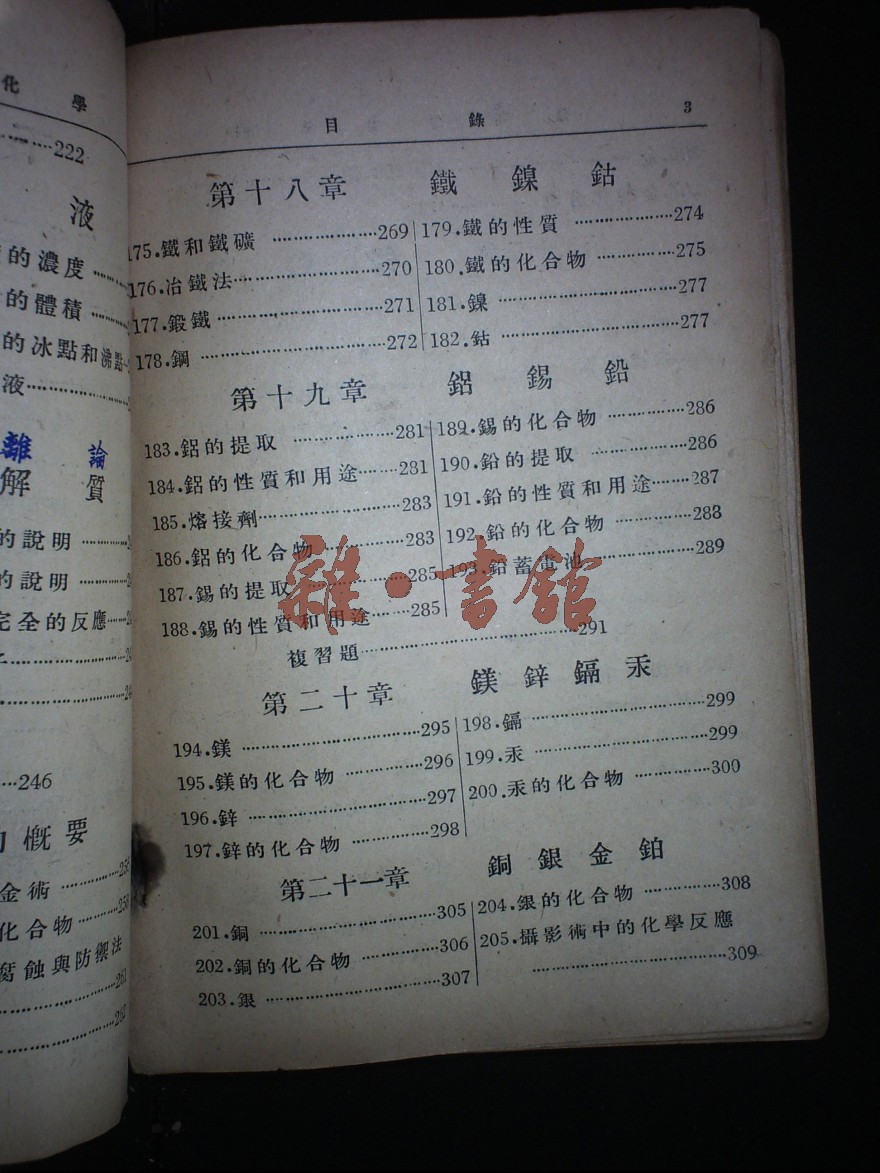 化學
222
液
的濃度
的體積
的冰點和沸點
液
離論
解質
的說明
的說明
完全的反應
246
概要
金術
化合物
腐蝕與防禦法
目錄 3
第十八章 鐵鎳鈷
175.鐵和鐵礦 269
176.冶鐵法 270
177.鍛鐵 271
178.鋼 272
179.鐵的性質 274
180.鐵的化合物 275
181.鎳 277
182.鈷 277
第十九章 鋁錫鉛
183.鋁的提取 281
184.鋁的性質和用途 281
185.熔接劑 283
186.鋁的化合物 283
187.錫的提取 285
188.錫的性質和用途 285
189.錫的化合物 286
190.鉛的提取 286
191.鉛的性質和用途 287
192.鉛的化合物 288
193.鉛蓄電池 289
複習題 291
第二十章 鎂鋅鎘汞
194.鎂 295
195.鎂的化合物 296
196.鋅 297
197.鋅的化合物 298
198.鎘 299
199.汞 299
200.汞的化合物 300
第二十一章 銅銀金鉑
201.銅 305
202.銅的化合物 306
203.銀 307
204.銀的化合物 308
205.攝影術中的化學反應
309
雜·書館